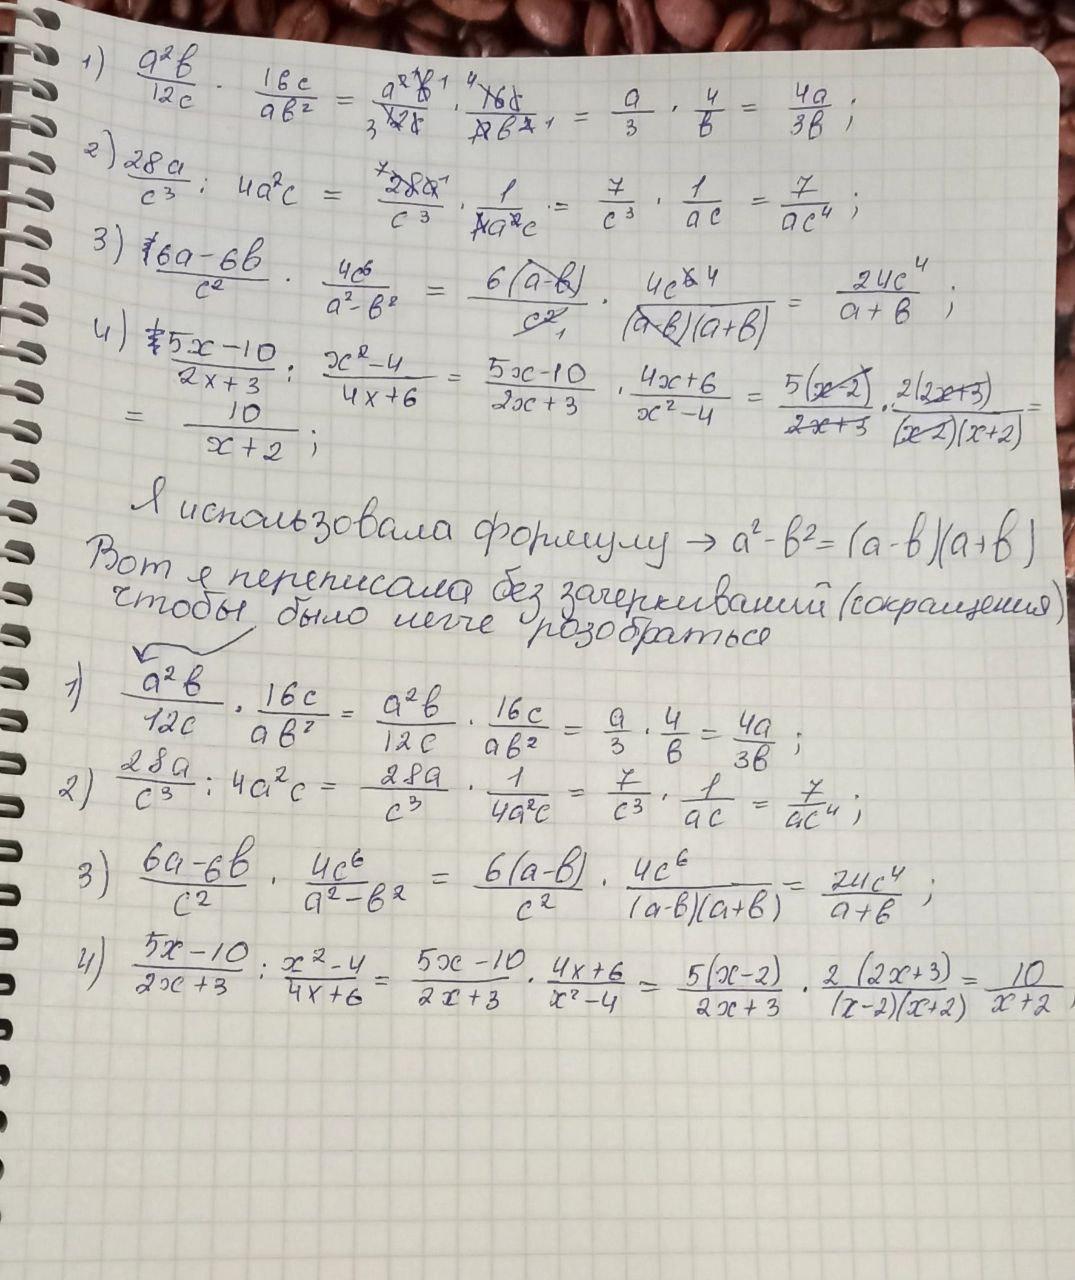 1) a²b/12c · 16c/ab² = a²b/12c · 16c/ab² = a/3 · 4/b = 4a/3b ;
2) 28a/c³ : 4a²c = 28a/c³ · 1/4a²c · = 7/c³ · 1/ac = 7/ac⁴ ;
3) 6a-6b/c² · 4c⁶/a²-b² = 6(a-b)/c² · 4c⁶/(a-b)(a+b) = 24c⁴/a+b ;
4) 5x-10/2x+3 : x²-4/4x+6 = 5x-10/2x+3 · 4x+6/x²-4 = 5(x-2)/2x+3 · 2(2x+3)/(x-2)(x+2) =
= 10/x+2 ;
Я использовала формулу → a²-b²=(a-b)(a+b)
Вот я переписала без зачеркиваний (сокращения)
чтобы было легче розобраться
1) a²b/12c · 16c/ab² = a²b/12c · 16c/ab² = a/3 · 4/b = 4a/3b ;
2) 28a/c³ : 4a²c = 28a/c³ · 1/4a²c = 7/c³ · 1/ac = 7/ac⁴ ;
3) 6a-6b/c² · 4c⁶/a²-b² = 6(a-b)/c² · 4c⁶/(a-b)(a+b) = 24c⁴/a+b ;
4) 5x-10/2x+3 : x²-4/4x+6 = 5x-10/2x+3 · 4x+6/x²-4 = 5(x-2)/2x+3 · 2(2x+3)/(x-2)(x+2) = 10/x+2 ;